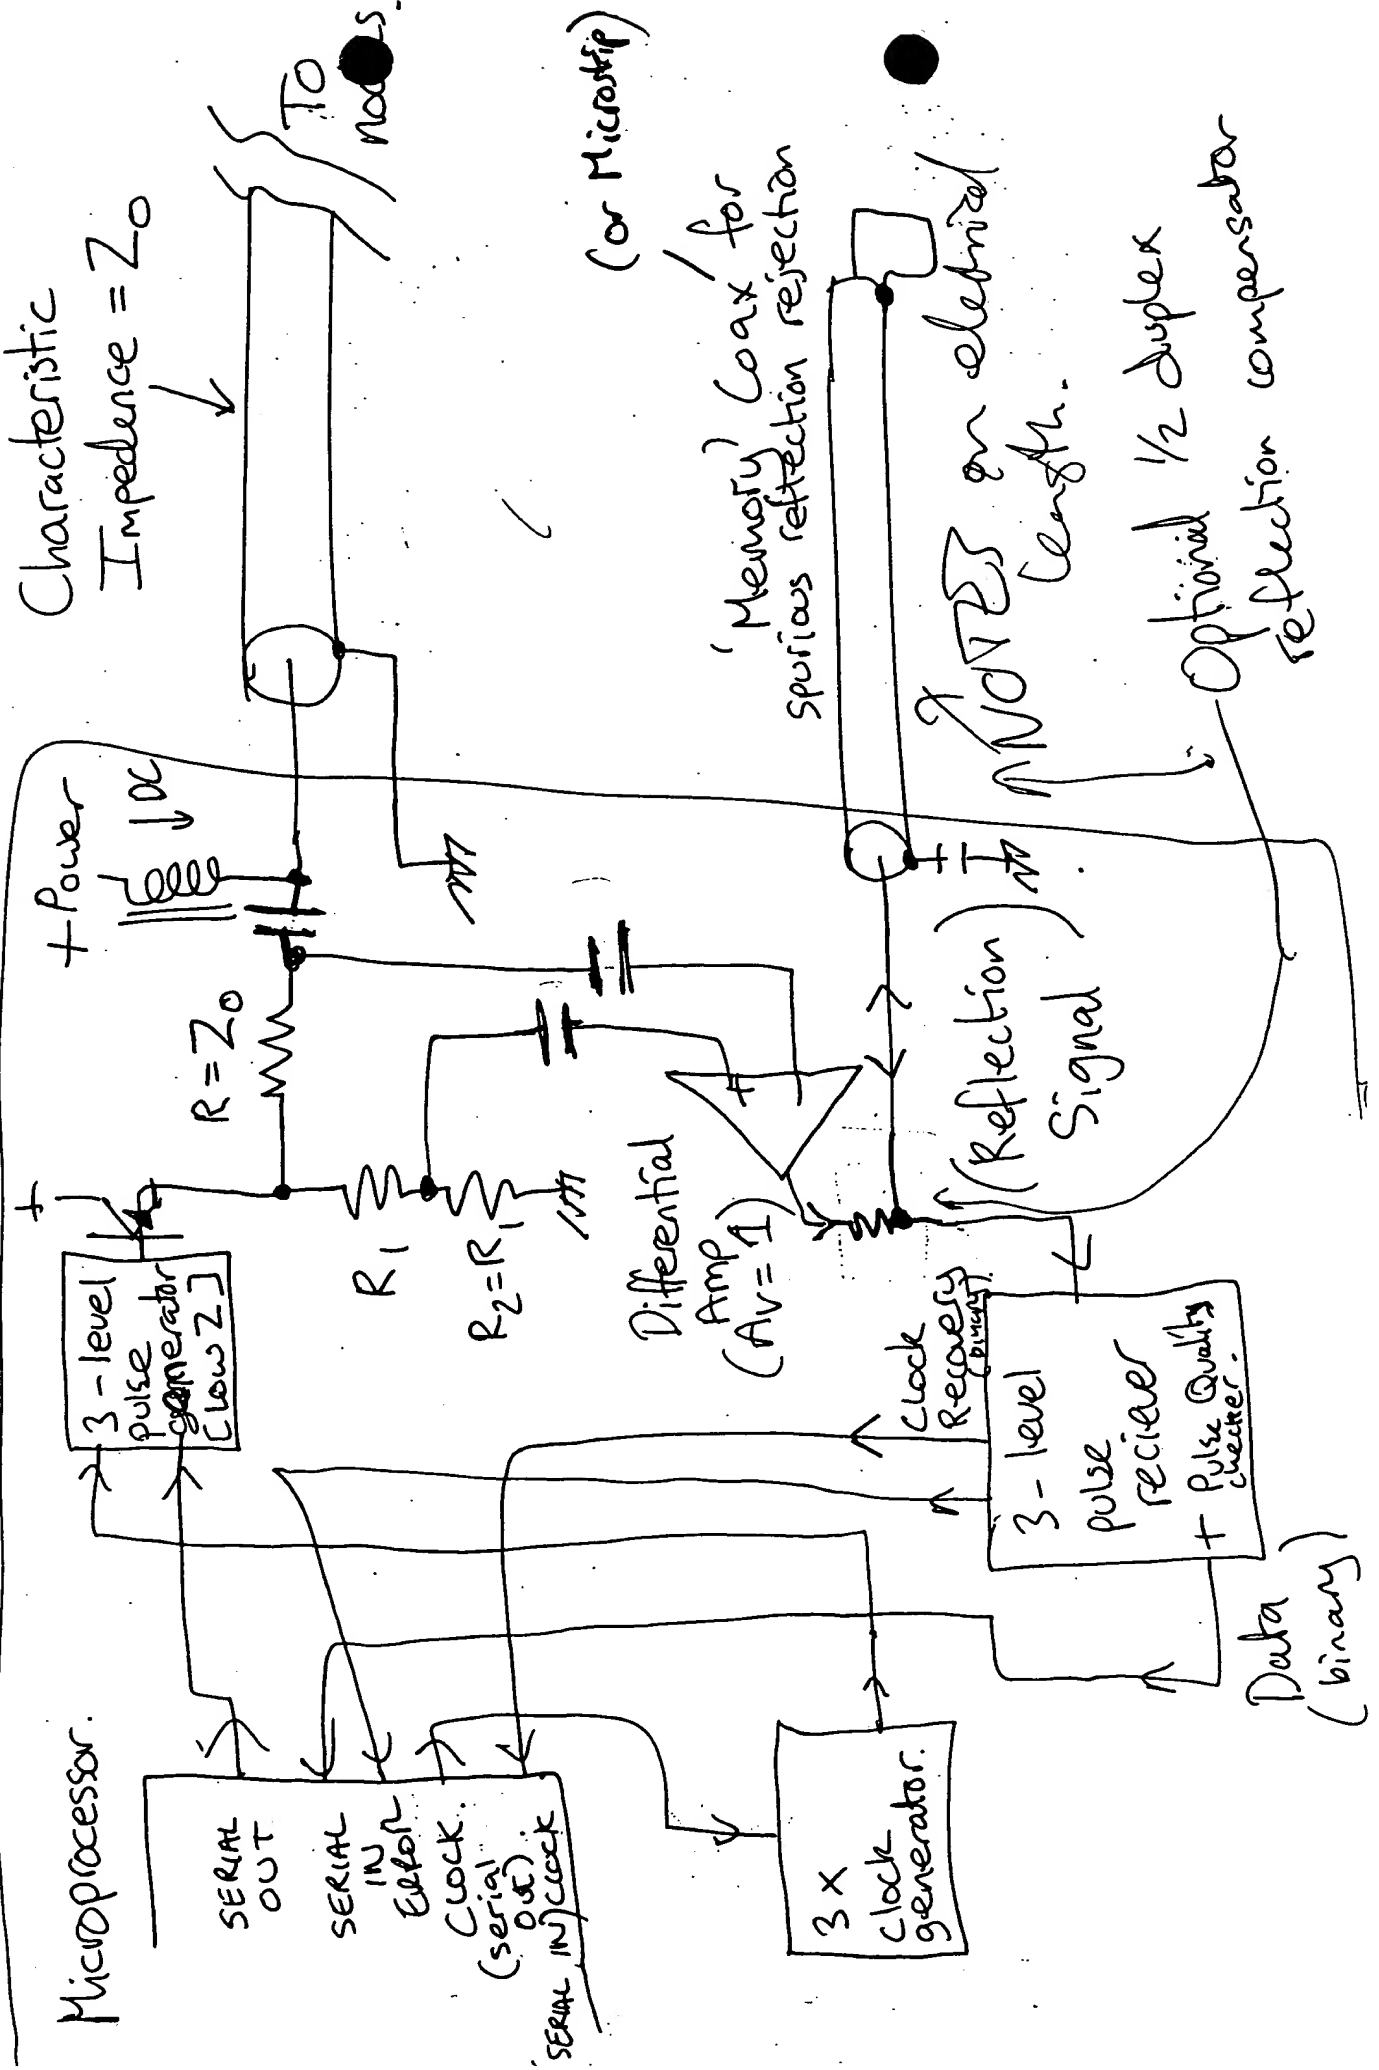 Microprocessor.
SERIAL
OUT
SERIAL
IN
ERROR
CLOCK.
(serial
out).
SERIAL IN CLOCK
3x
Clock
generator.
3-level
pulse
generator
[low Z]
+
R = Z0
+Power
DC
Characteristic
Impedence = Z0
To
nodes.
R1
R2=R1
Differential
Amp
(Av=1)
+
Clock
Recovery
(binary).
3-level
pulse
reciever
+ Pulse Quality
checker.
Data
(binary)
(Reflection)
Signal
(or Microstrip)
'Memory' Coax for
spurious reflection rejection
NOTES on electrical
length.
Optional 1/2 duplex
reflection compensator